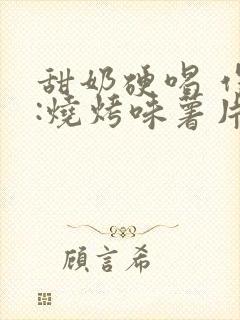 甜奶硬唱
:燒烤味薯片
顧言希